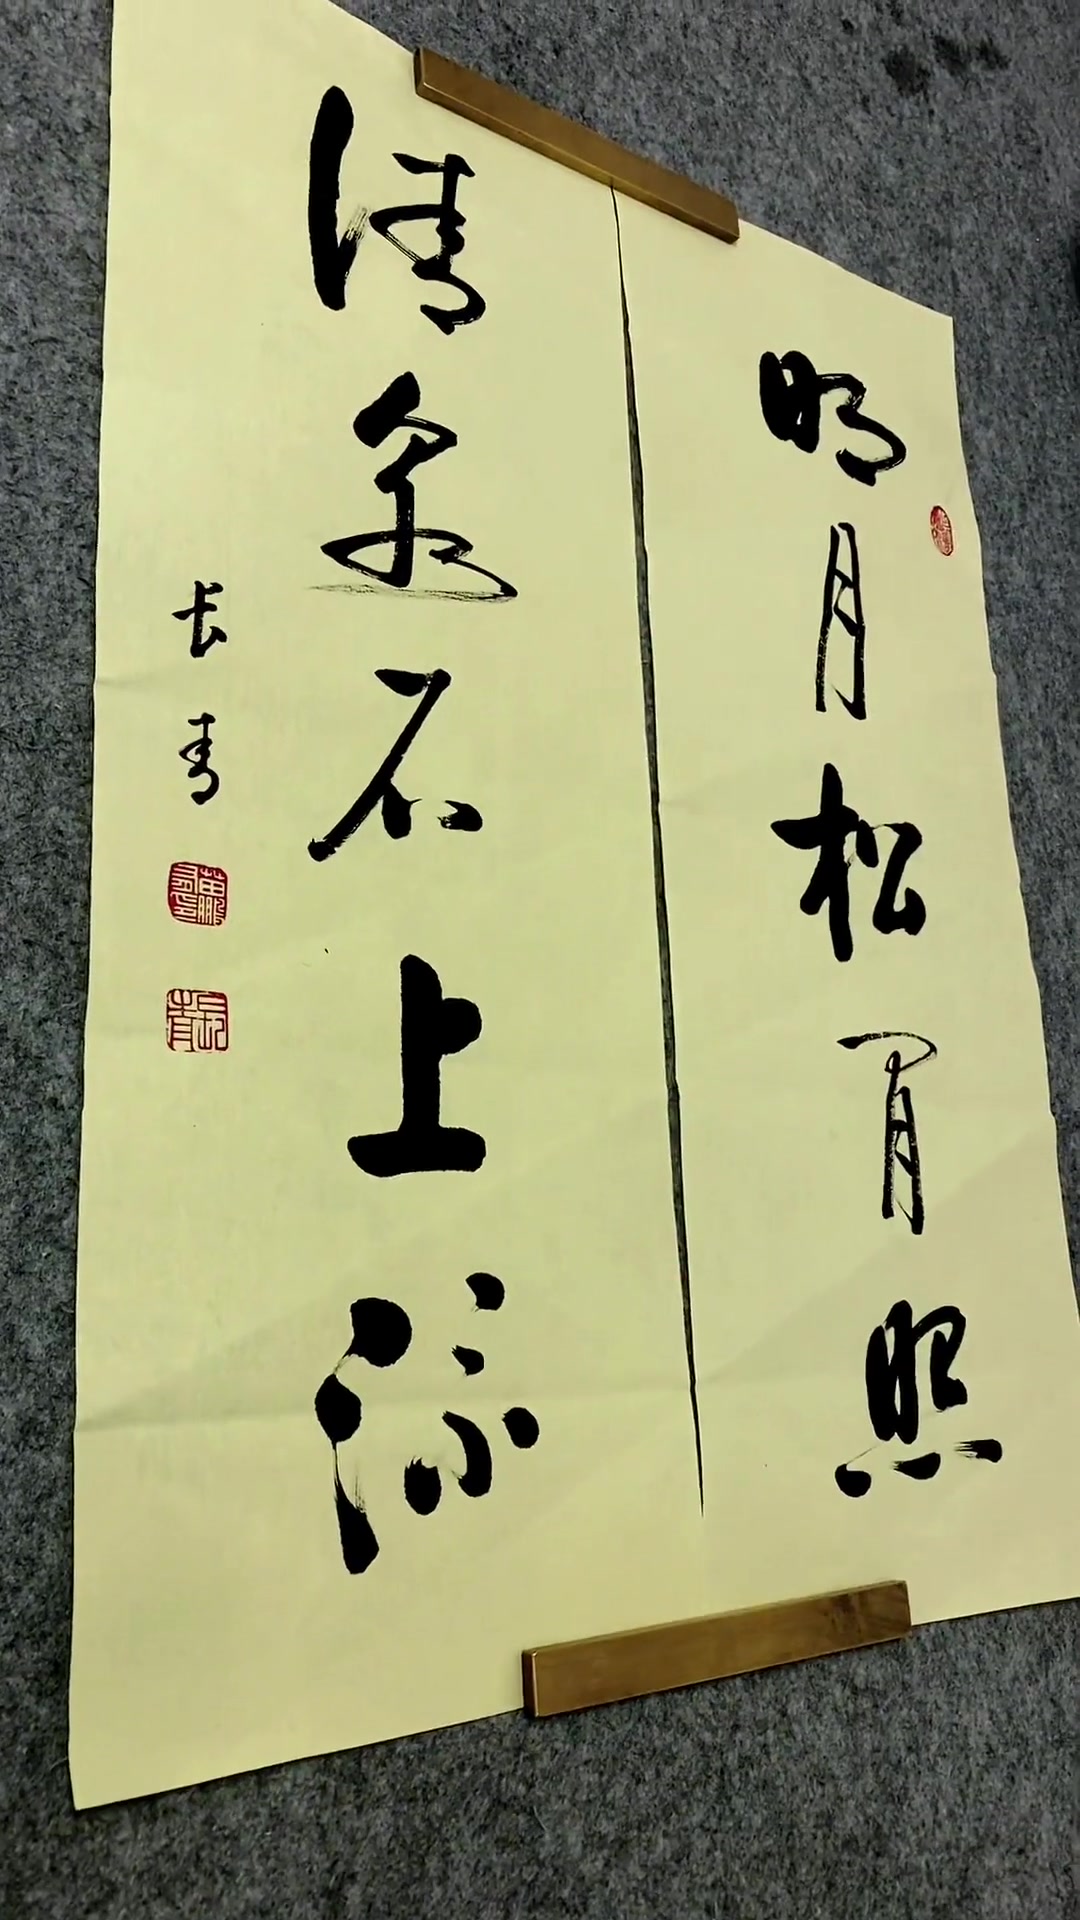 明月松間照
清泉石上流
长青